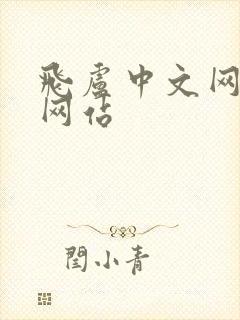 飛盧中文网
网站
閆小青